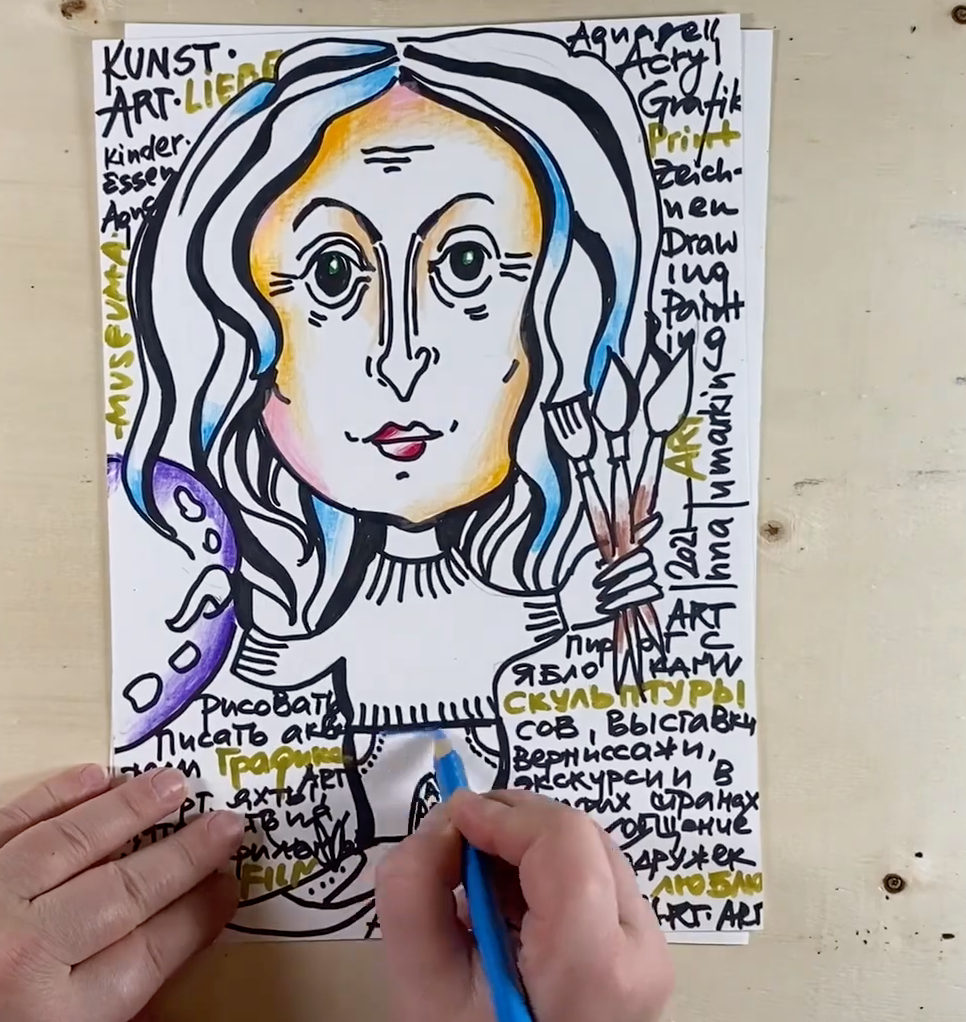 KUNST.
ART.LIEBE
Kinder.
Essen
MUSEUM
Aquarell
Acryl
Grafik
Print
Zeich-
nen
Draw
ing
Paint
ing
ART
2021
Inna
ART
С
ЯБЛО КАМИ
СКУЛЬПТУРЫ
СОВ, ВЫСТАВКИ
ВЕРНИССАЖИ,
ЭКСКУРСИИ В
СТРАНАХ
ЛЮБЛЮ
ART. ART
РИСОВАТЬ
ПИСАТЬ
Графика
ART
ЯХТЫ
FILM